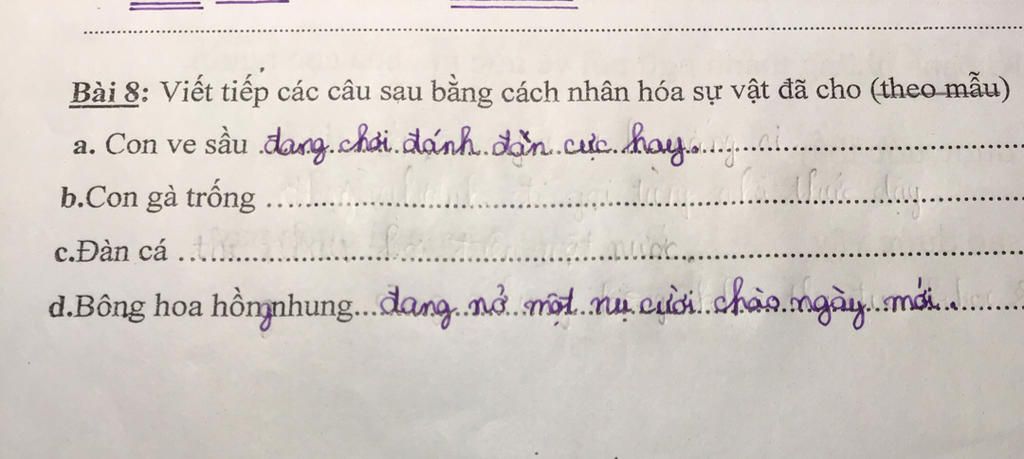 Bài 8: Viết tiếp các câu sau bằng cách nhân hóa sự vật đã cho (theo mẫu)
a. Con ve sầu đang chơi đánh đàn cực hay.
b.Con gà trống
c.Đàn cá
d.Bông hoa hồng nhung đang nở một nụ cười chào ngày mới.